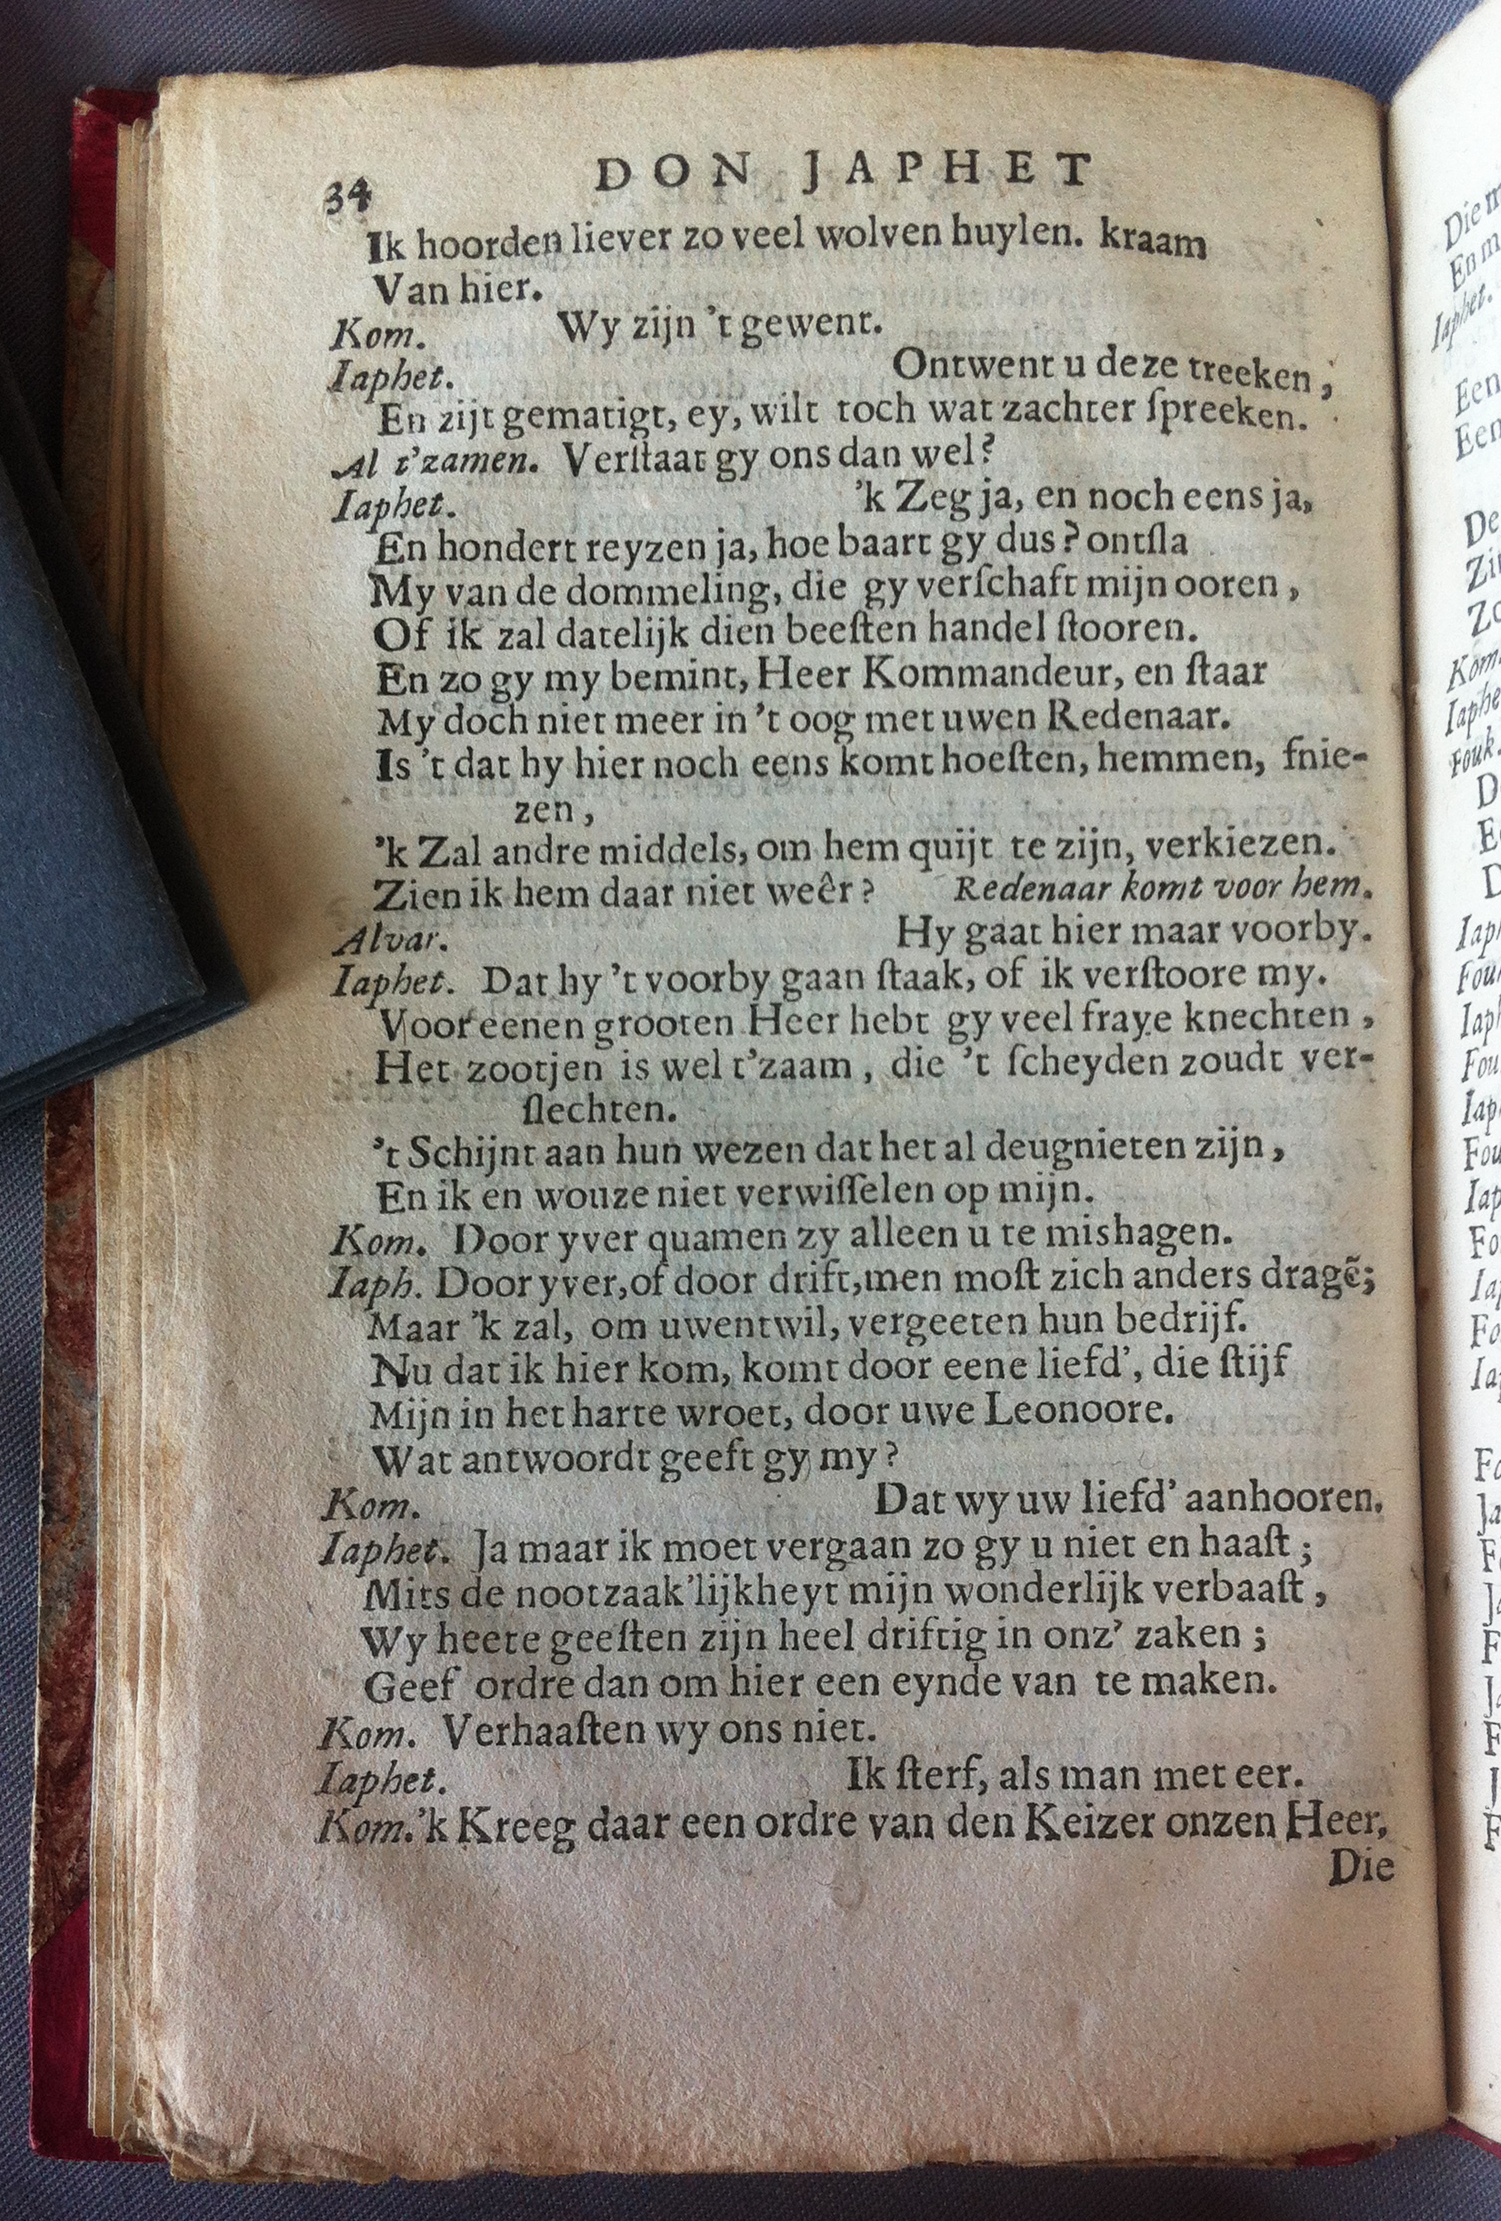 34 DON JAPHET
Ik hoorden liever zo veel wolven huylen. kraam
Van hier.
Kom. Wy zijn 't gewent.
Iaphet. Ontwent u deze treeken,
En zijt gematigt, ey, wilt toch wat zachter ſpreeken.
Al t'zamen. Verſtaat gy ons dan wel?
Iaphet. 'k Zeg ja, en noch eens ja,
En hondert reyzen ja, hoe baart gy dus? ontſla
My van de dommeling, die gy verſchaft mijn ooren,
Of ik zal datelijk dien beeſten handel ſtooren.
En zo gy my bemint, Heer Kommandeur, en ſtaar
My doch niet meer in 't oog met uwen Redenaar.
Is 't dat hy hier noch eens komt hoeſten, hemmen, ſnie-
zen,
'k Zal andre middels, om hem quijt te zijn, verkiezen.
Zien ik hem daar niet weêr? Redenaar komt voor hem.
Alvar. Hy gaat hier maar voorby.
Iaphet. Dat hy 't voorby gaan ſtaak, of ik verſtoore my.
Voor eenen grooten Heer hebt gy veel fraye knechten,
Het zootjen is wel t'zaam, die 't ſcheyden zoudt ver-
ſlechten.
't Schijnt aan hun wezen dat het al deugnieten zijn,
En ik en wouze niet verwiſſelen op mijn.
Kom. Door yver quamen zy alleen u te mishagen.
Iaph. Door yver, of door drift, men moſt zich anders dragẽ;
Maar 'k zal, om uwentwil, vergeeten hun bedrijf.
Nu dat ik hier kom, komt door eene liefd', die ſtijf
Mijn in het harte wroet, door uwe Leonoore.
Wat antwoordt geeft gy my?
Kom. Dat wy uw liefd' aanhooren.
Iaphet. Ja maar ik moet vergaan zo gy u niet en haaſt;
Mits de nootzaak'lijkheyt mijn wonderlijk verbaaſt,
Wy heete geeſten zijn heel driftig in onz' zaken;
Geef ordre dan om hier een eynde van te maken.
Kom. Verhaaſten wy ons niet.
Iaphet. Ik ſterf, als man met eer.
Kom. 'k Kreeg daar een ordre van den Keizer onzen Heer,
Die